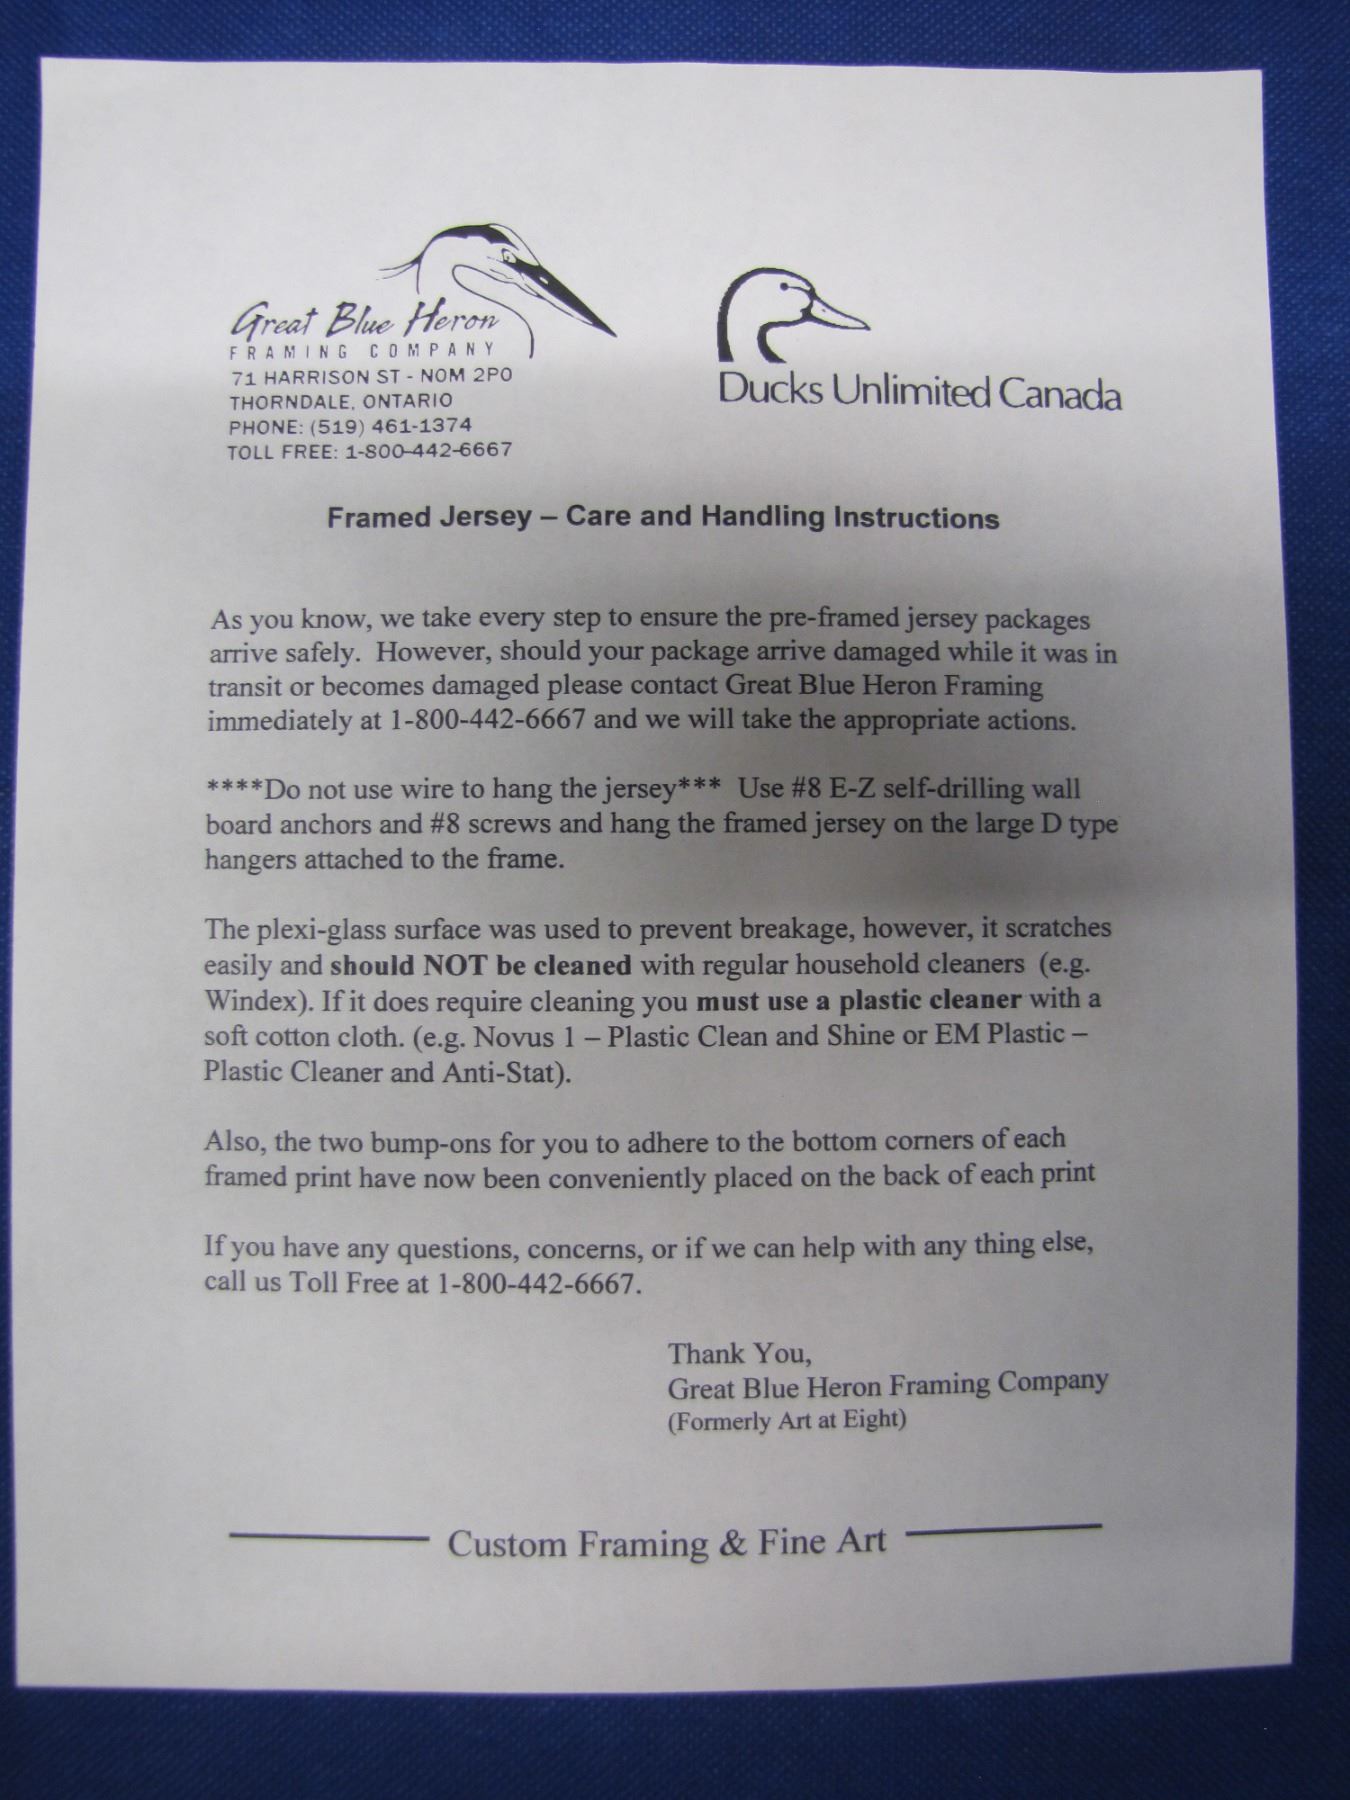 Great Blue Heron
FRAMING COMPANY
71 HARRISON ST - NOM 2PO
THORNDALE, ONTARIO
PHONE: (519) 461-1374
TOLL FREE: 1-800-442-6667
Ducks Unlimited Canada
Framed Jersey – Care and Handling Instructions
As you know, we take every step to ensure the pre-framed jersey packages
arrive safely.  However, should your package arrive damaged while it was in
transit or becomes damaged please contact Great Blue Heron Framing
immediately at 1-800-442-6667 and we will take the appropriate actions.
****Do not use wire to hang the jersey***  Use #8 E-Z self-drilling wall
board anchors and #8 screws and hang the framed jersey on the large D type
hangers attached to the frame.
The plexi-glass surface was used to prevent breakage, however, it scratches
easily and should NOT be cleaned with regular household cleaners  (e.g.
Windex). If it does require cleaning you must use a plastic cleaner with a
soft cotton cloth. (e.g. Novus 1 – Plastic Clean and Shine or EM Plastic –
Plastic Cleaner and Anti-Stat).
Also, the two bump-ons for you to adhere to the bottom corners of each
framed print have now been conveniently placed on the back of each print
If you have any questions, concerns, or if we can help with any thing else,
call us Toll Free at 1-800-442-6667.
Thank You,
Great Blue Heron Framing Company
(Formerly Art at Eight)
Custom Framing & Fine Art